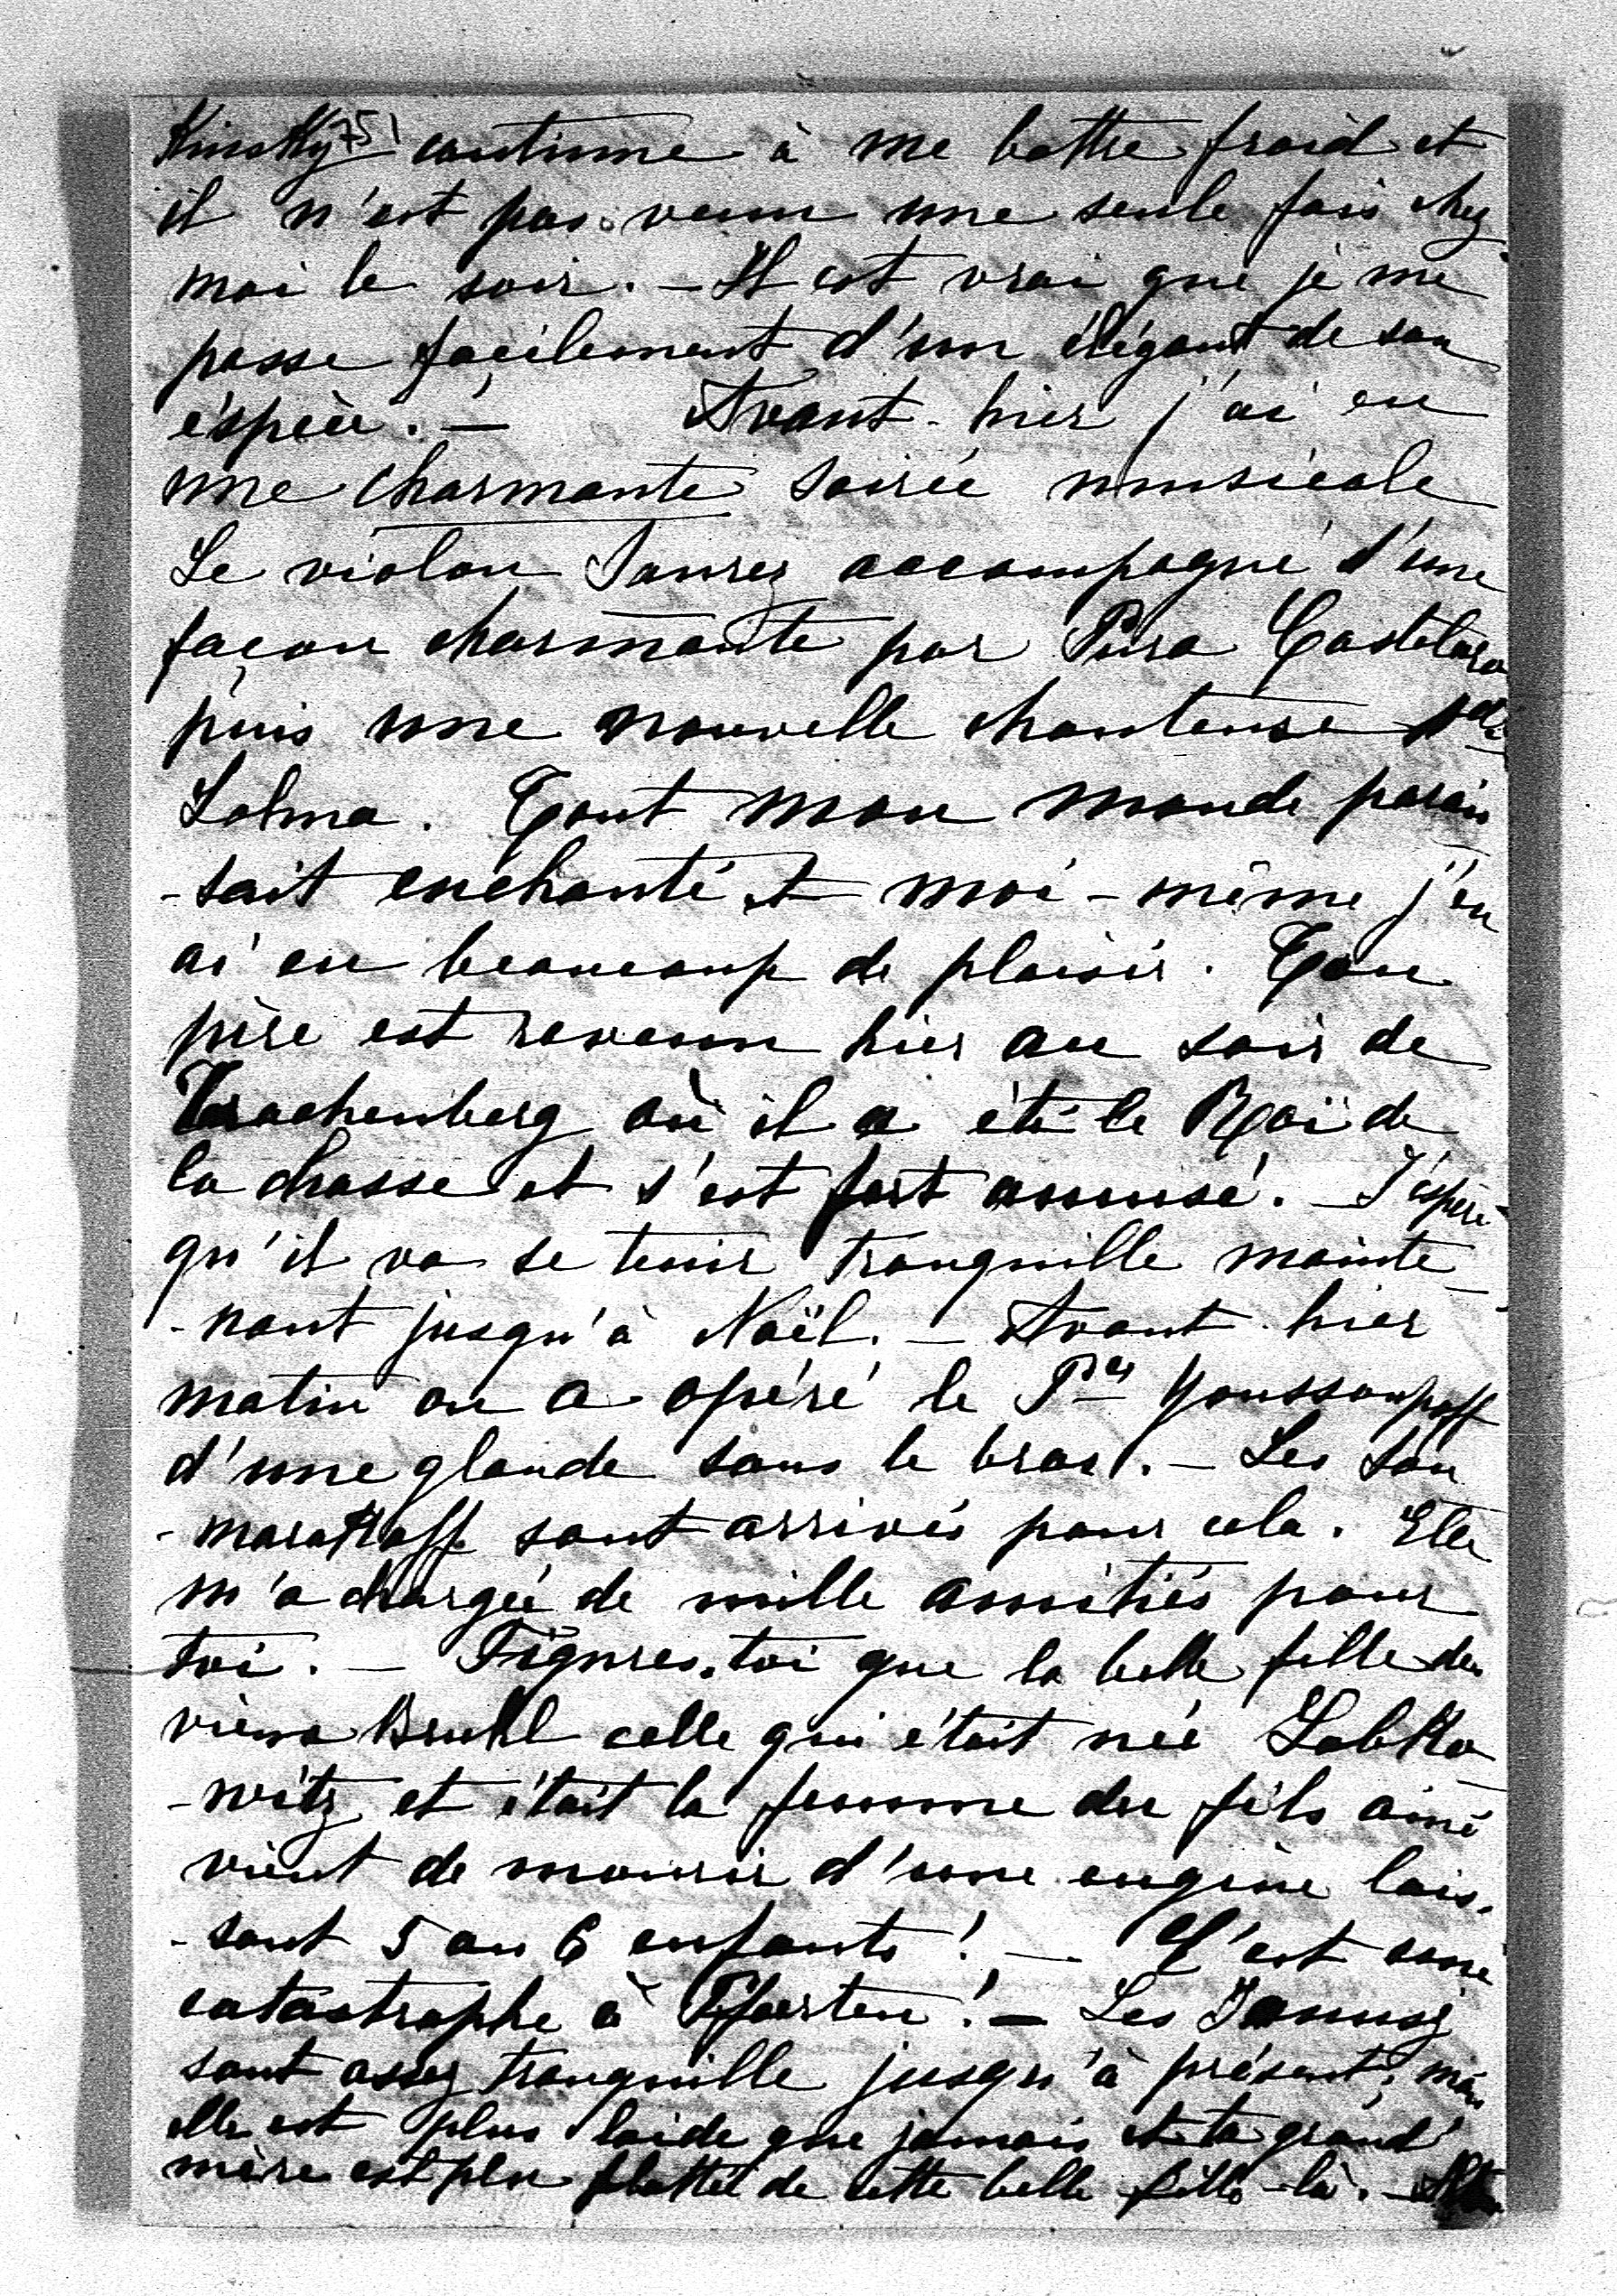 Kinsky 751 continue à me battre froid et
il n'est pas venu une seule fois chez
moi le soir. — Il est vrai que je me
passe facilement d'un élégant de son
espèce. — Avant-hier j'ai eu
une charmante soirée musicale
Le violon accompagné d'une
façon charmante par Pura Castelaro
puis une nouvelle chanteuse
Tout mon monde parais
-sait enchanté et moi-même j'en
ai eu beaucoup de plaisir. Ton
père est revenu hier au soir de
Trachenberg où il a été le Roi de
la chasse et s'est fort amusé. — J'espère
qu'il va se tenir tranquille mainte
-nant jusqu'à Noël. — Avant hier
matin on a opéré le Pce Youssoupoff
d'une glande sous le bras. — Les Sou
-marokoff sont arrivés pour cela. Elle
m'a chargée de mille amitiés pour
toi. — Figures-toi que la belle fille du
vieux Bruhl celle qui était née Lobko
-witz et était la femme du fils aîné
vient de mourir d'une angine lais-
-sant 5 ou 6 enfants ! — C'est une
catastrophe à Pfoerten ! — Les Janusz
sont assez tranquille jusqu'à présent ; mais
elle est plus laide que jamais et ta grand'
mère est peu flattée de cette belle fille-là. —